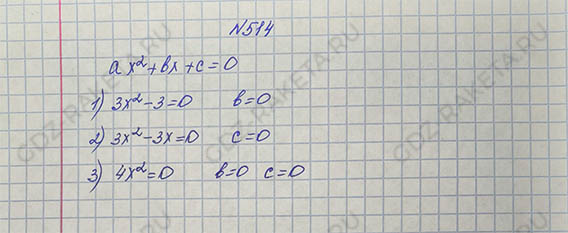 №514
ax²+bx+c=0
1) 3x²-3=0 b=0
2) 3x²-3x=0 c=0
3) 4x²=0 b=0 c=0
GDZ-RAKETA.RU
GDZ-RAKETA.RU
GDZ-RAKETA.RU